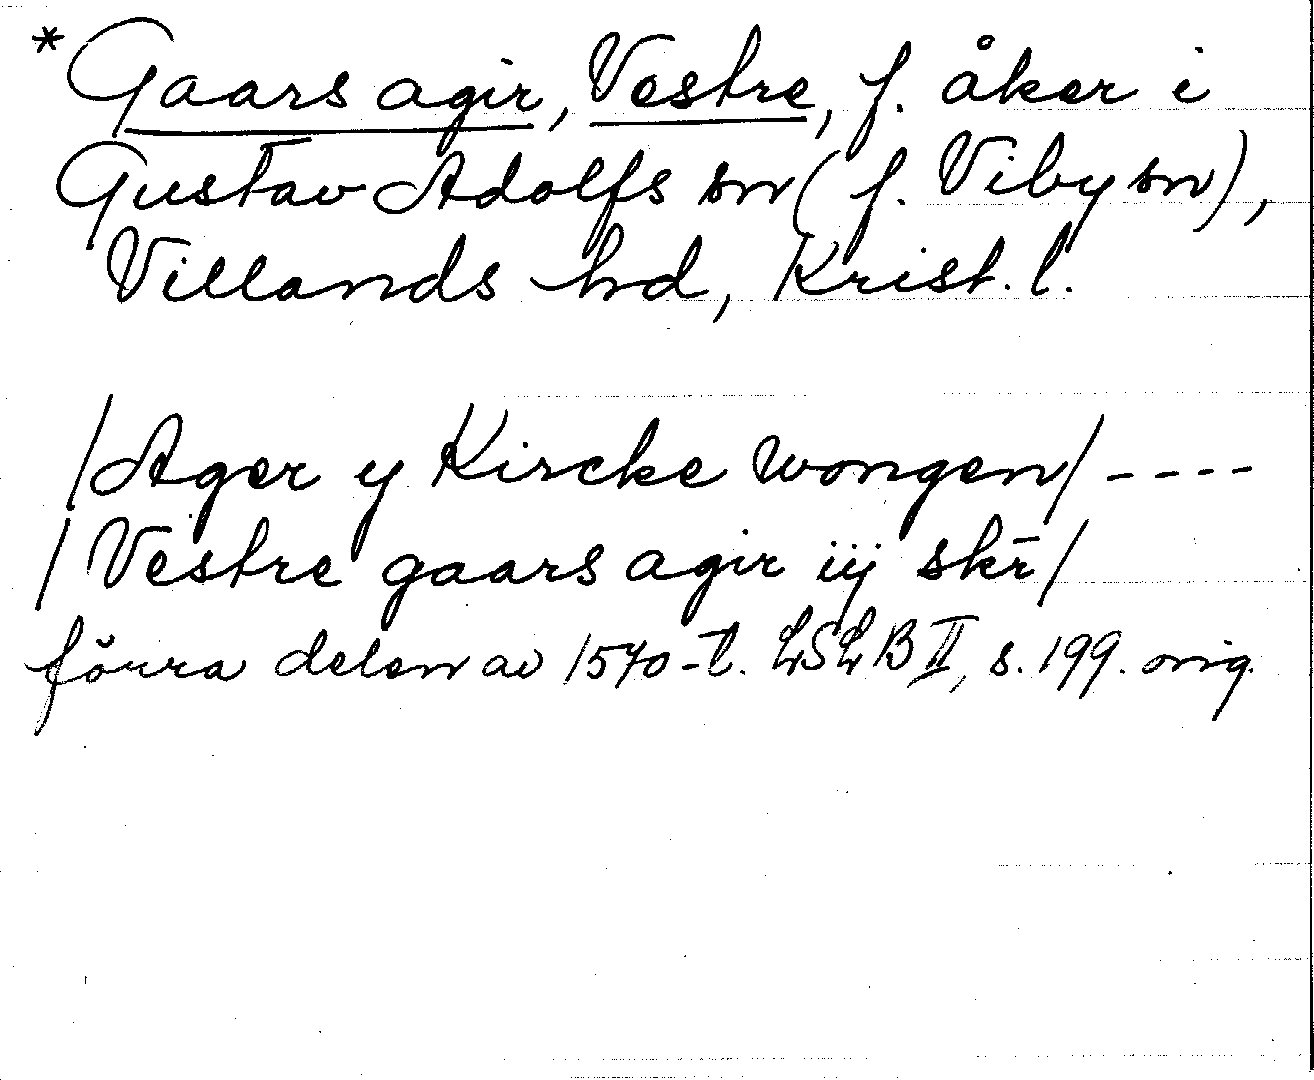 *Gaars agir, Vestre, f. åker i
Gustav Adolfs sn (f. Viby sn),
Villands hd, Krist. l.
/Ager y Kircke wongen/ ----
/Vestre gaars agir iij skr̄/
förra delen av 1570-t. LSLB II, s. 199. orig.